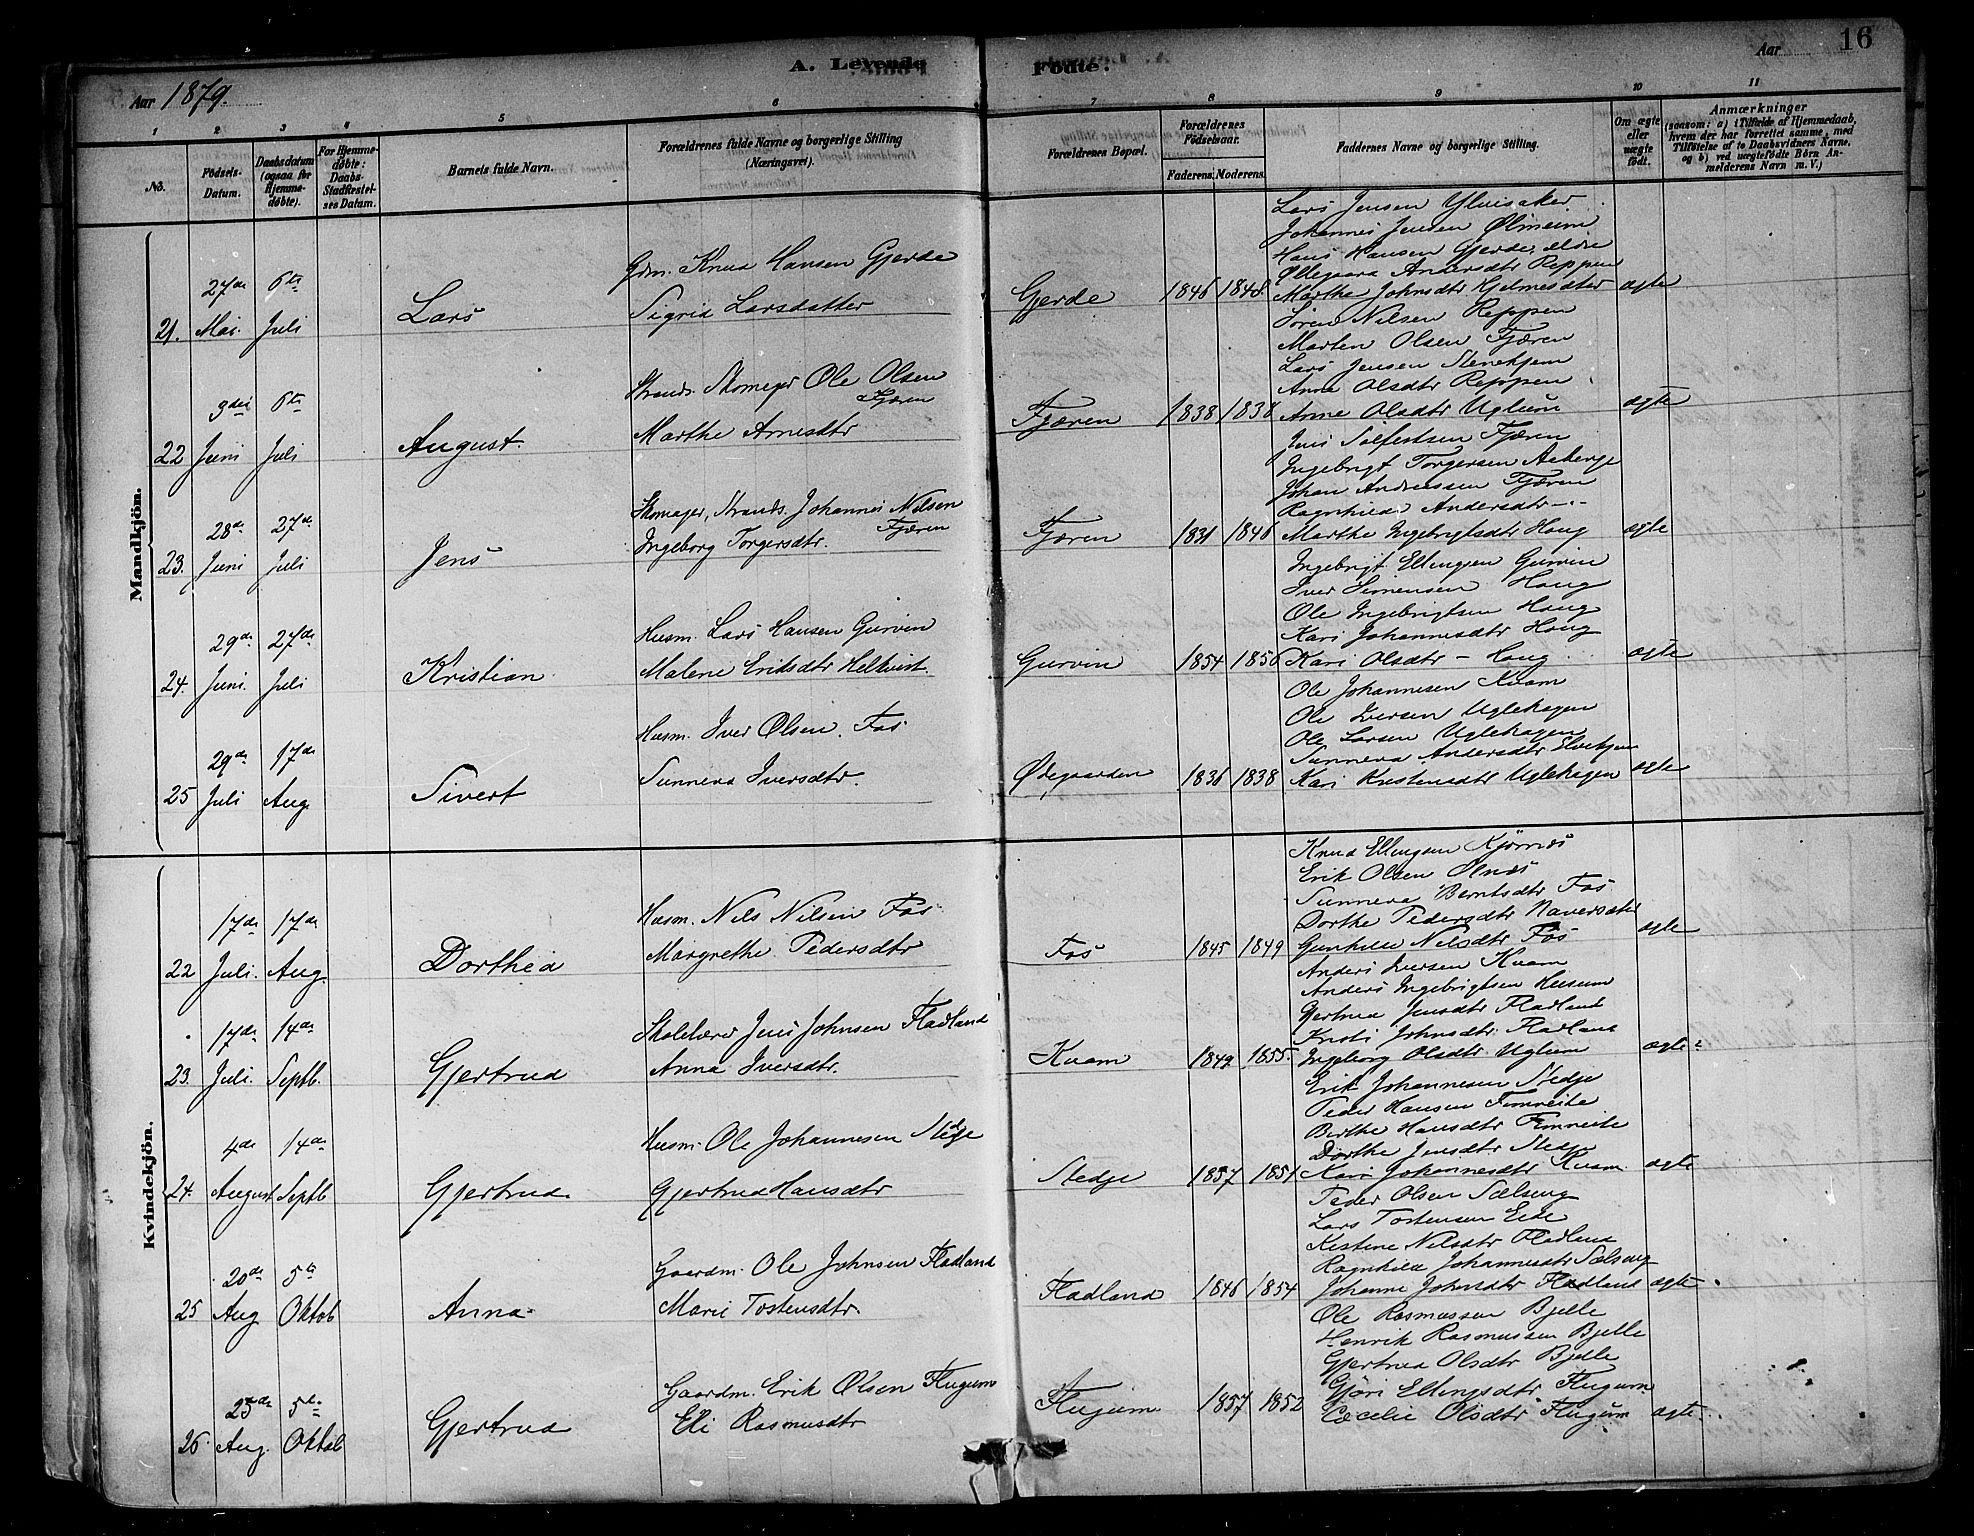 A. Levende Fødte.
Aar 1879.
Aar 16
1 2 3 4 5 6 7 8 9 10 11
No.
Fødsels-Datum.
Daabsdatum (ogsaa for Hjemmedøbte).
For Hjemmedøbte: Daabs-Stadfæstelses Datum.
Barnets fulde Navn.
Forældrenes fulde Navne og borgerlige Stilling (Næringsvei).
Forældrenes Bopæl.
Forældrenes Fødselsaar.
Faderens. Moderens.
Faddernes Navne og borgerlige Stilling.
Om ægte eller uægte født.
Anmærkninger
(saasom: a) i Tilfælde af Hjemmedaab, hvem der har forrettet samme, med Tilføielse af to Daabsvidners Navne, og b) ved uægtefødte Børn Anmelderens Navn m. V.)
Mandkjön.
21. 27de Mai. 6te Juli
Lars
Gdm. Knud Hansen Gjerde
Sigrid Larsdatter
Gjerde 1846 1848.
Lars Jensen Ylvisaker
Johannes Jensen Ølmeim
Hans Hansen Gjerde, ældre
Øllegaard Andersdtr Reppen
Marthe Johnsdtr Hjelmesæter
ægte
22 3die Juni 6te Juli
August.
Strands. Skomager Ole Olsen Fjæren
Marthe Arnesdtr
Fjæren 1838 1838
Søren Nilsen Reppen
Marten Olsen Fjæren
Lars Jensen Stenehjem
Anne Olsdtr Reppen
Anne Olsdtr Uglum
ægte
23. 28de Juni 27de Juli
Jens
Skomager, Strands. Johannes Nilsen Fjæren
Ingeborg Torgersdtr.
Fjæren 1831 1846
Jens Solfestsen Fjæren
Ingebrigt Torgersen Aaberge
Johan Andreassen Fjæren
Ragnhild Andersdtr -"-
Marthe Ingebrigtsdtr Haug
ægte
24. 29de Juni. 27de Juli
Kristian
Husm. Lars Hansen Gurvin
Malene Eriksdtr Helkvist.
Gurvin 1854 1856
Ingebrigt Ellingsen Gurvin
Iver Simensen Haug
Ole Ingebrigtsen Haug
Kari Johannesdtr Haug
Kari Olsdtr - Haug
ægte
25 29de Juli 17de Aug.
Sivert
Husm. Iver Olsen. Fos
Sunneva Iversdtr.
Ødegaarden 1836 1838
Ole Johannesen Kvam
Ole Iversen Uglehagen
Ole Larsen Uglehagen
Sunneva Andersdtr Elvehjem
Kari Kristensdtr Uglehagen
ægte
Kvindekjön.
22 17de Juli. 17de Aug.
Dorthea
Husm. Nils Nilsen Fos
Margrethe Pedersdtr
Fos 1845 1849
Knud Ellingsen Kjørnæs
Erik Olsen Ølnæs
Sunneva Berntsdtr Fos
Dorthe Pedersdtr Navarsæte
Gunhild Nilsdtr Fos
ægte
23. 17de Juli. 14de Septb.
Gjertrud
Skolelærer Jens Johnsen Fladland
Anna Iversdtr.
Kvam 1849 1855.
Anders Iversen Kvam
Anders Ingebrigtsen Husum
Gjertrud Jensdtr Fladland
Kristi Johnsdtr. Fladland
Ingeborg Olsdtr Uglum
ægte
24. 4de August 14de Septb
Gjertrud.
Husm. Ole Johannesen Stedje
Gjertrud Hansdtr
Stedje 1857 1851
Erik Johannesen Stedje
Peder Hansen Fimreite
Berthe Hansdtr Fimreite
Dorthe Jensdtr Stedje
Kari Johannesdtr Kvam
ægte
25 20de Aug 5te Oktob
Anna
Gaardm. Ole Johnsen Fladland
Marie Tostensdtr.
Fladland 1846 1854
Peder Olsen Sælseng
Lars Tostensen Eide
Kestine Nilsdtr Fladland
Ragnhild Johannesdtr Sælseng
Johanne Johnsdtr Fladland
ægte.
26. 23de Aug. 5te Oktob
Gjertrud
Gaardm. Erik Olsen Flugum
Eli Rasmusdtr
Flugum 1857 1852
Ole Rasmussen Bjelle
Henrik Rasmussen Bjelle
Gjertrud Olsdtr Bjelle
Gjøri Ellingsdtr Flugum
Cecilie Olsdtr Flugum
ægte.